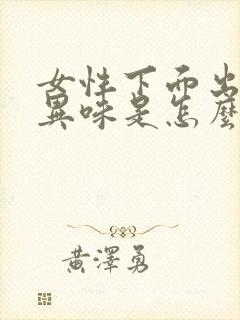 女性下面出
異味是怎麼
黃澤勇